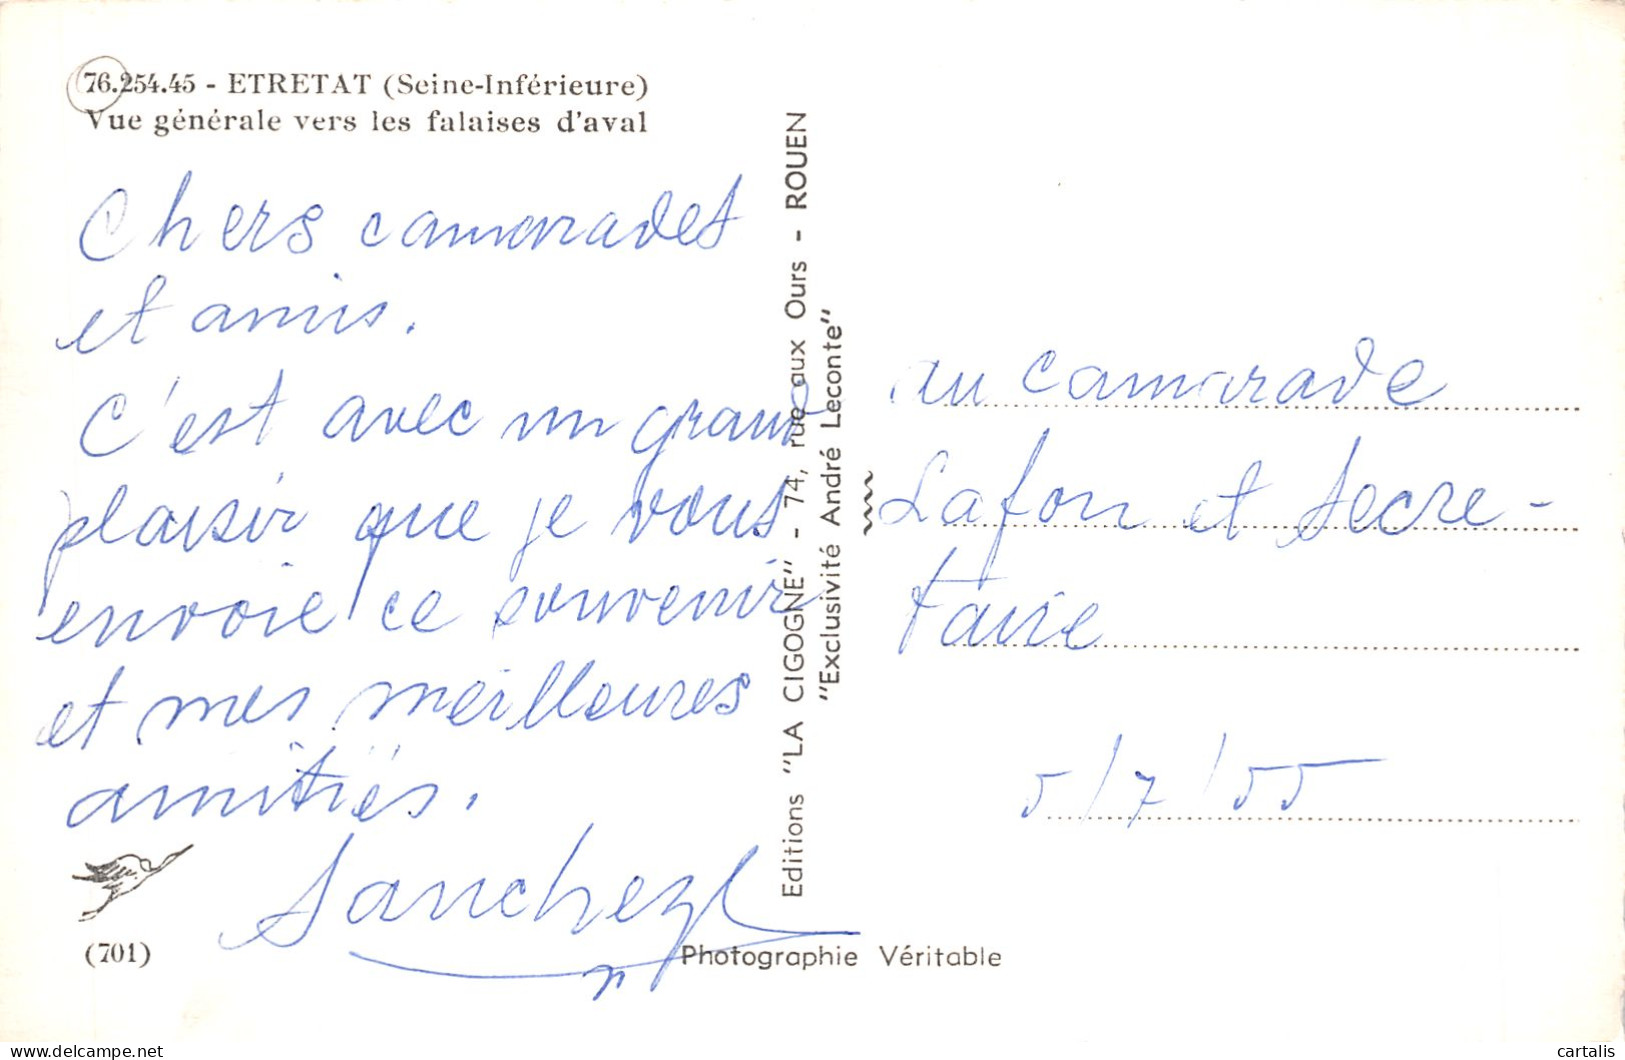 76.254.45 - ETRETAT (Seine-Inférieure)
Vue générale vers les falaises d'aval
Chers camarades
et amis.
C'est avec un grand
plaisir que je vous
envoie ce souvenir
et mes meilleures
amitiés.
Sanchez
(701)
Editions "LA CIGOGNE" - 74, rue aux Ours - ROUEN
"Exclusivité André Leconte"
Photographie Véritable
au camarade
Lafon et Secre-
taire
5/7/55
www.delcampe.net
cartalis